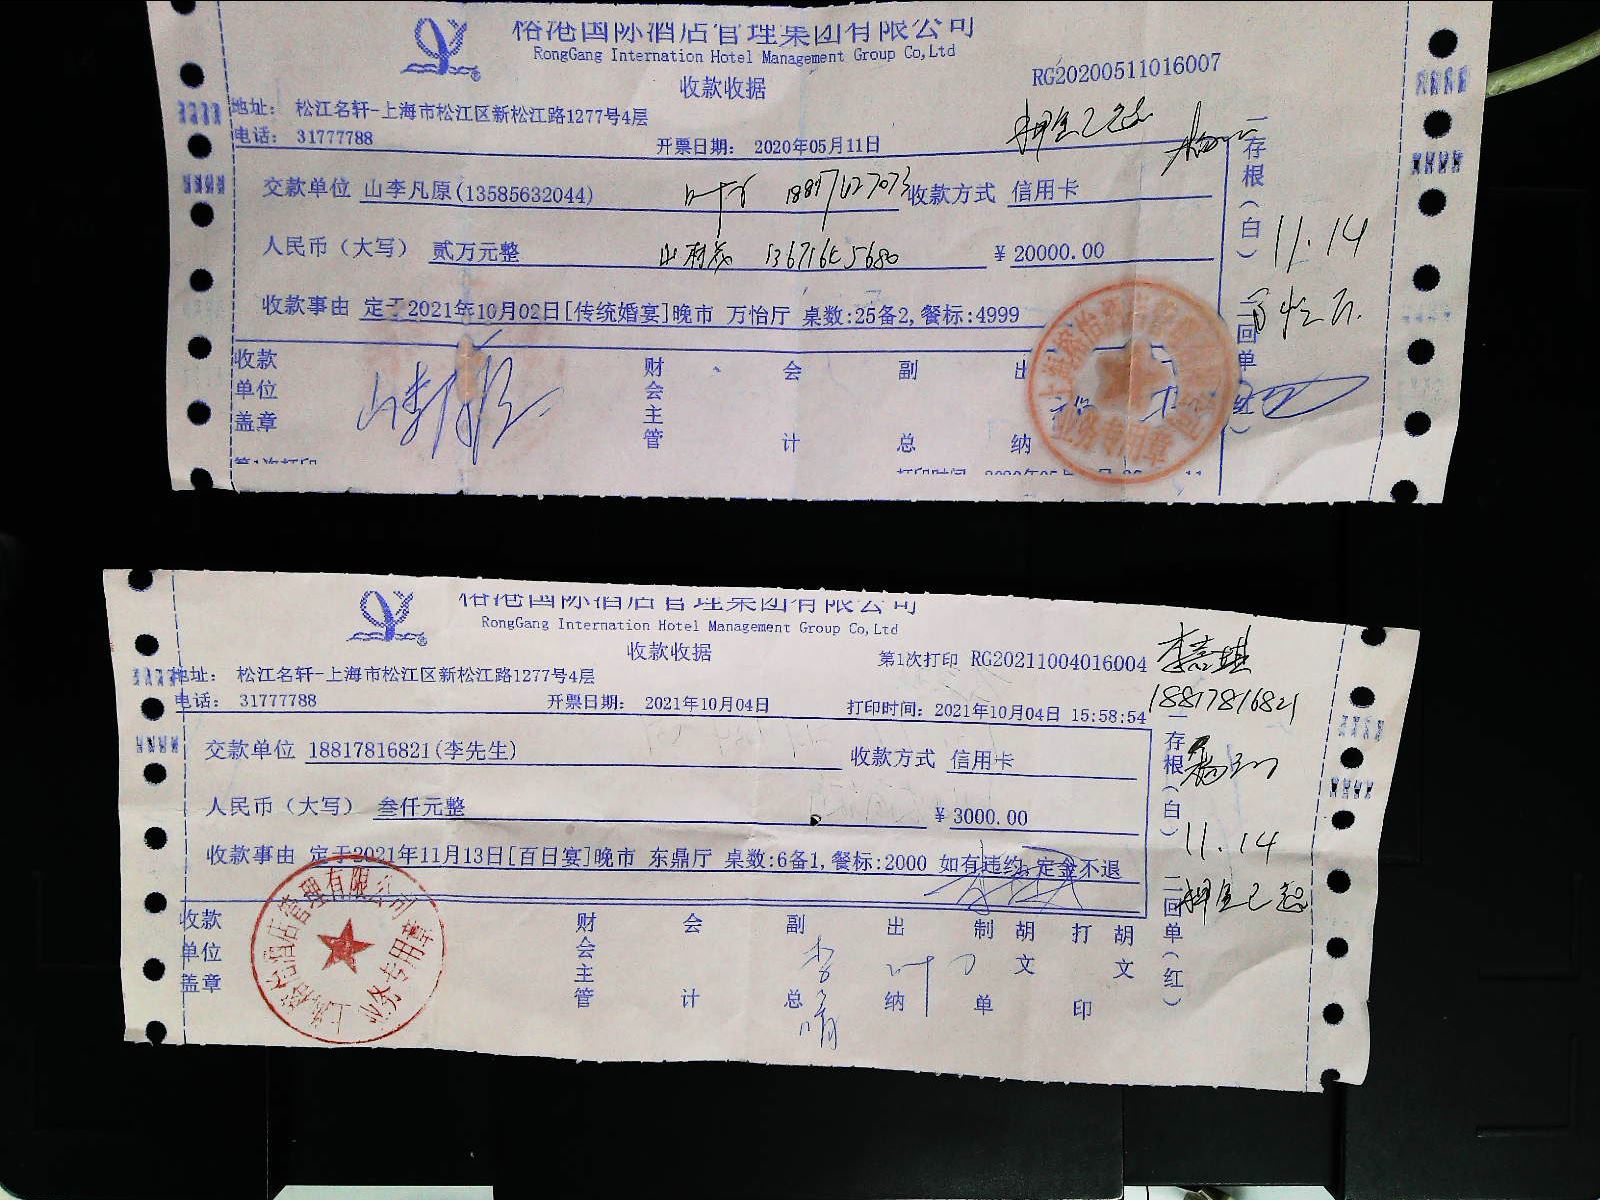 榕港国际酒店管理集团有限公司
RongGang Internation Hotel Management Group Co,Ltd
收款收据
RG20200511016007
地址: 松江名轩-上海市松江区新松江路1277号4层
电话: 31777788
开票日期: 2020年05月11日
押金已退
交款单位 山李凡原(13585632044)
收款方式 信用卡
人民币（大写） 贰万元整
¥ 20000.00
收款事由 定于2021年10月02日[传统婚宴]晚市 万怡厅 桌数:25备2,餐标:4999
一存根（白） 二回单（红）
11.14
收款单位盖章
财会主管
会计
副总
出纳
业务专用章
榕港国际酒店管理集团有限公司
RongGang Internation Hotel Management Group Co,Ltd
收款收据
第1次打印 RG20211004016004
李嘉琪
18817816821
地址: 松江名轩-上海市松江区新松江路1277号4层
电话: 31777788
开票日期: 2021年10月04日
打印时间: 2021年10月04日 15:58:54
交款单位 18817816821(李先生)
收款方式 信用卡
人民币（大写） 叁仟元整
¥ 3000.00
收款事由 定于2021年11月13日[百日宴]晚市 东鼎厅 桌数:6备1,餐标:2000 如有违约,定金不退
一存根（白） 二回单（红）
11.14
押金已退
收款单位盖章
财会主管
会计
副总
出纳
制单
胡文
打印
胡文
业务专用章